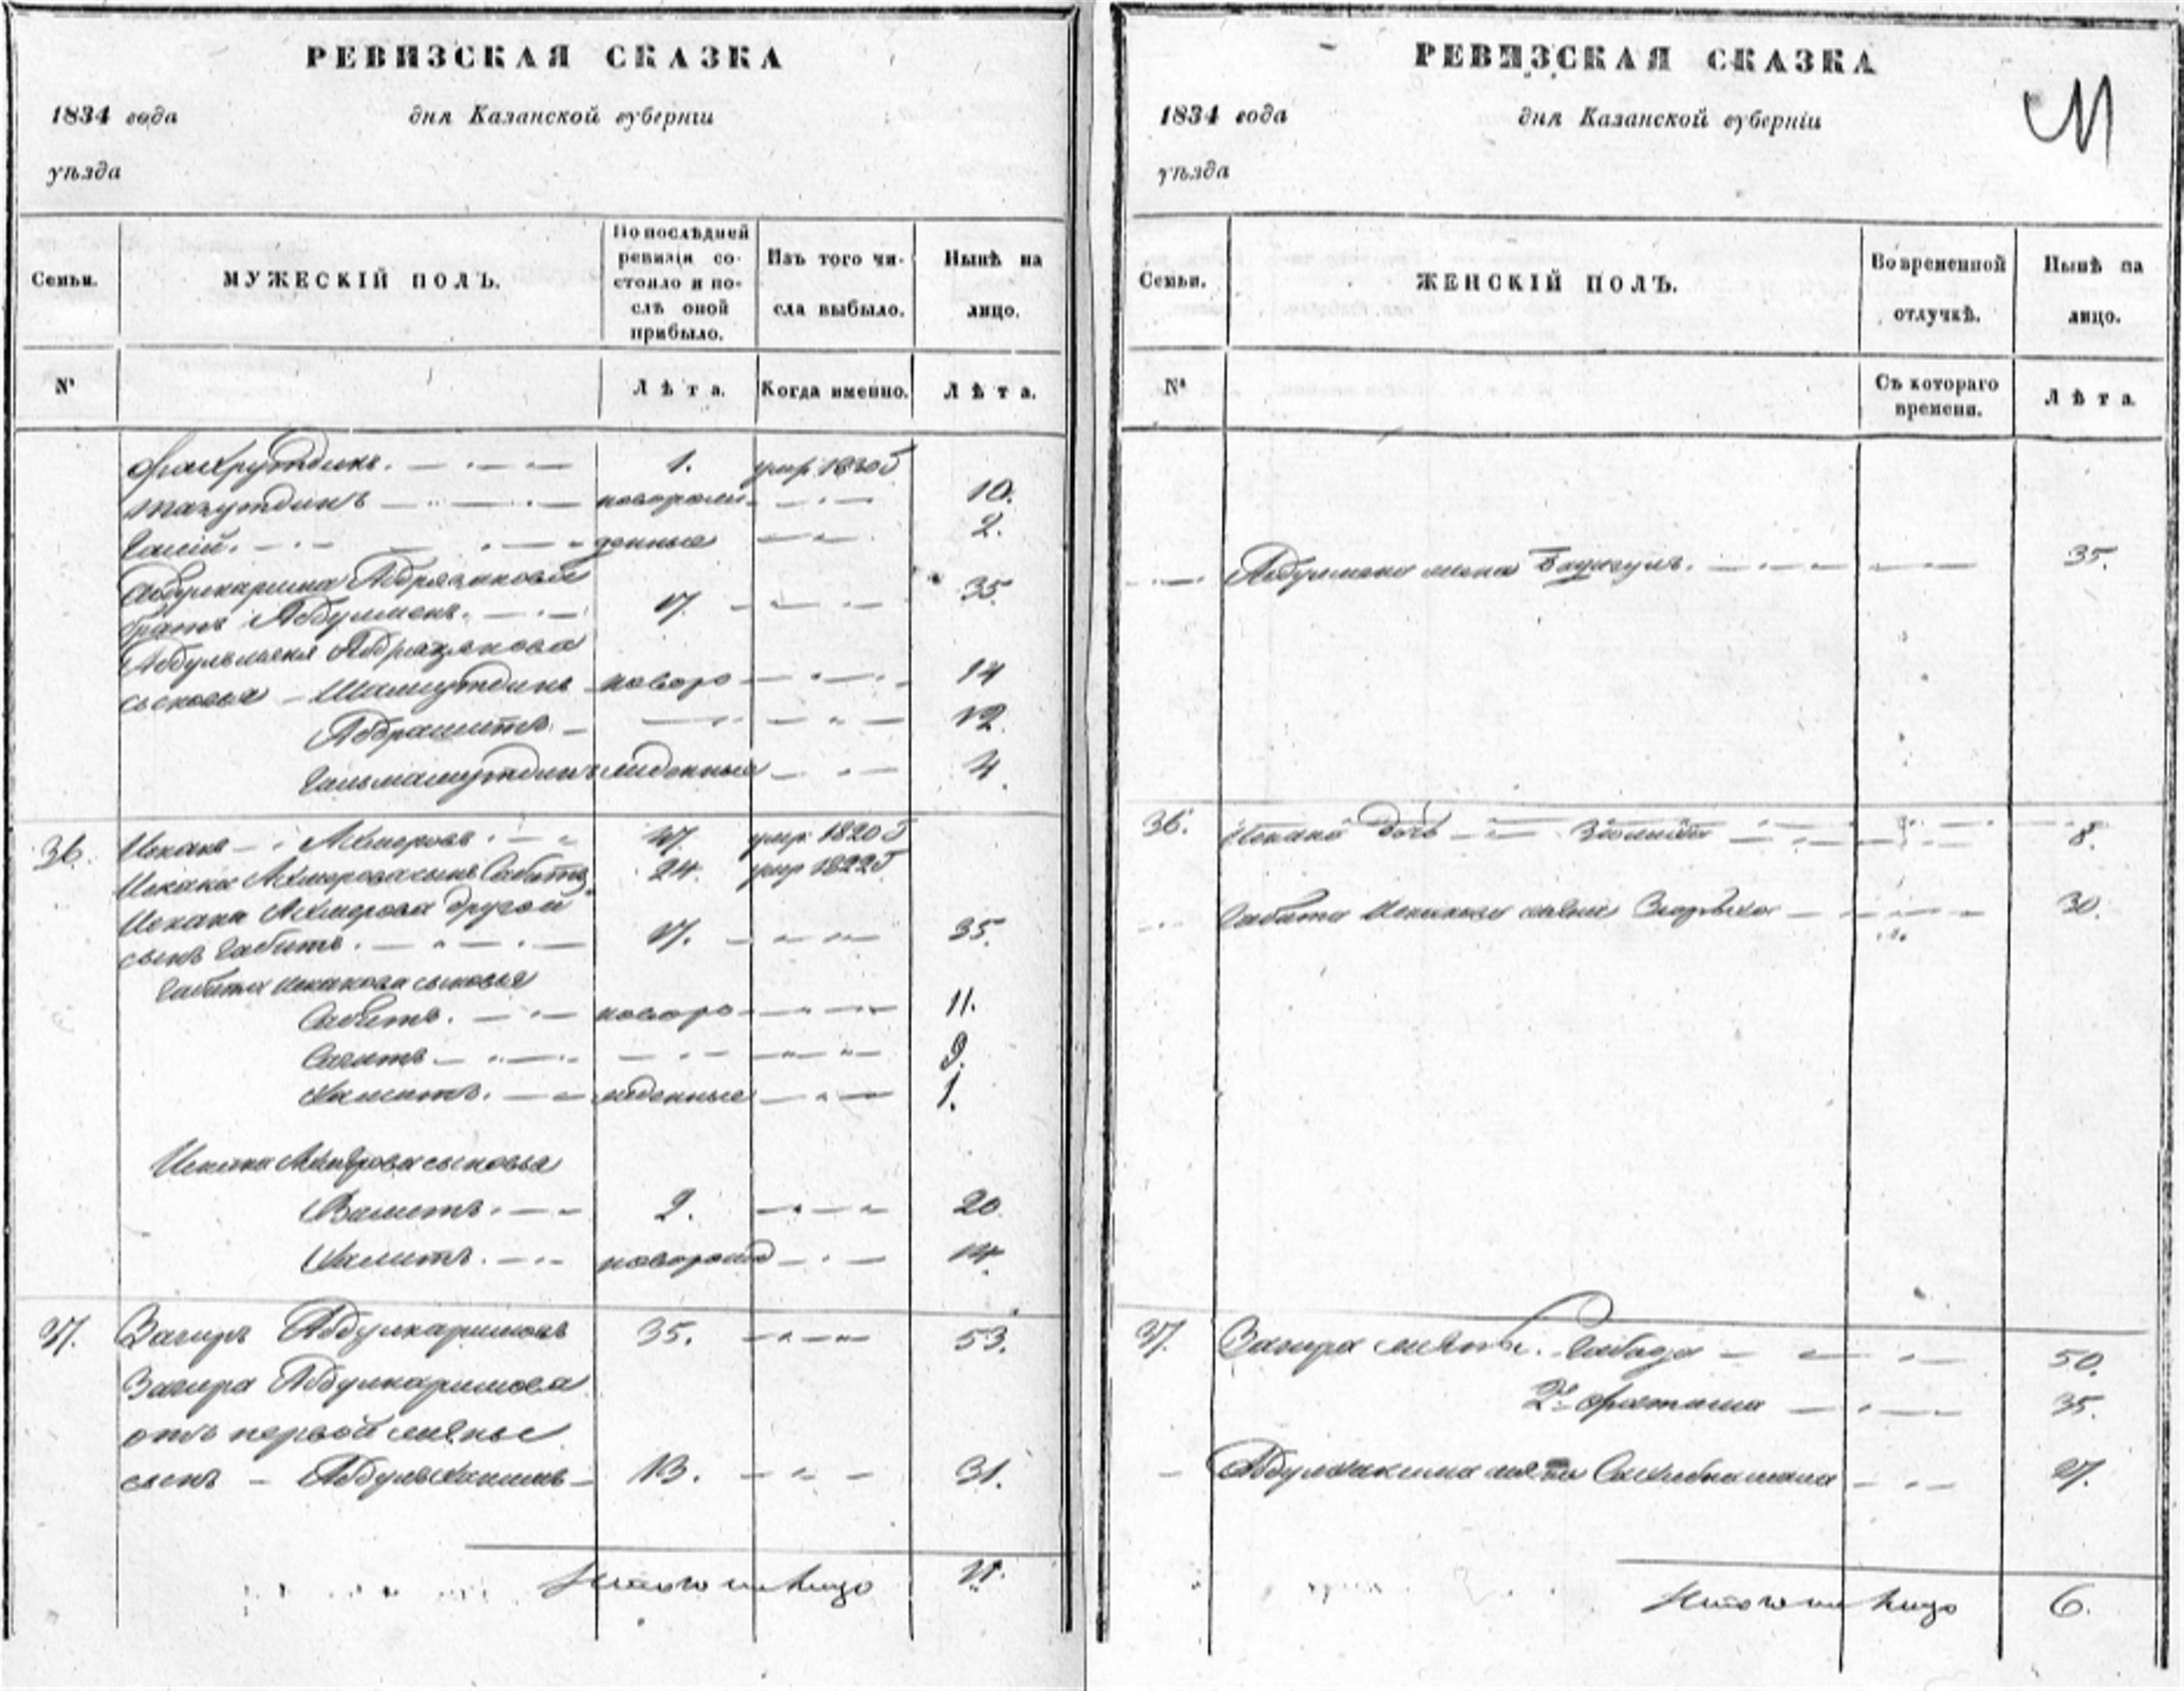 РЕВИЗСКАЯ СКАЗКА
1834 года дня Казанской губерніи
уѣзда
Семьи. МУЖЕСКІЙ ПОЛЪ. По последней ревизіи состояло и послѣ оной прибыло. Изъ того числа выбыло. Нынѣ на лицо.
№ Лѣта. Когда именно. Лѣта.
Фахрутдинъ. 1. умр. 1830 г
Тазутдинъ новорож- 10.
Галій. денные 2.
Абдулкарима Абдрязакова
братъ Абдулменъ. 17. 35.
Абдульменя Абдрязякова
сыновья - Шамшутдинъ новоро 14
Абдрашитъ. 12.
жденные 4.
36. Искакъ Ахмеровъ. 47. умр. 1820 г
Искака Ахмерова сынъ Сабитъ 24. умр 1822 г
Искака Ахмерова другой
сынъ Габитъ. 17. 35.
Габита Искакова сыновья
Сабитъ. новоро 11.
Сагитъ 9.
Хамитъ. жденные 1.
Искака Ахмерова сыновья
Вамитъ. 2. 20
Халитъ. новорожд 14.
37. Загиръ Абдулкаримовъ 35. 53.
Загира Абдулкаримова
отъ первой жены
сынъ - Абдулхакимъ 13. 31.
Итого на лицо
РЕВИЗСКАЯ СКАЗКА
1834 года дня Казанской губерніи
уѣзда
Семьи. ЖЕНСКІЙ ПОЛЪ. Во временной отлучкѣ. Нынѣ на лицо.
№ Съ котораго времени. Лѣта.
Абдулменя жена 35.
36. Искака дочь 8.
Габита Искакова жена 30.
37. Загира жены. 50.
2я Фатима 35.
Абдулхакима жена 27.
Итого на лицо 6.